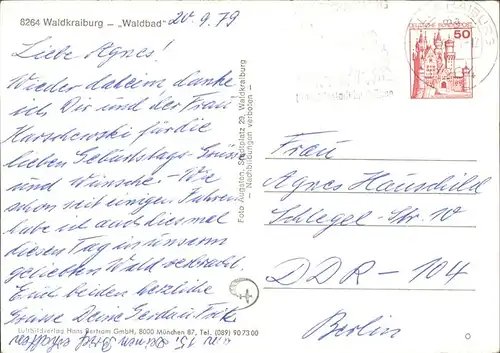 8264 Waldkraiburg – „Waldbad"
20.9.79
Liebe Agnes!
Wieder daheim, danke
ich Dir und der Frau
Harschewski für die
lieben Geburtstags-Grüsse
und Wünsche – Wie
schon seit einigen Jahren
habe ich auch diesmal
diesen Tag in unserem
geliebten Wald verbracht.
Euch beiden herzliche
Grüsse Deine
15. Deinen Brief erhalten
Luftbildverlag Hans Bertram GmbH, 8000 München 87, Tel. (089) 90 73 00
Foto Augsten, Stadtplatz 29, Waldkraiburg
– Nachbildungen verboten –
50
DEUTSCHE BUNDESPOST
Frau
Agnes Hauschild
Schlegel-Str. 10
DDR-104
Berlin